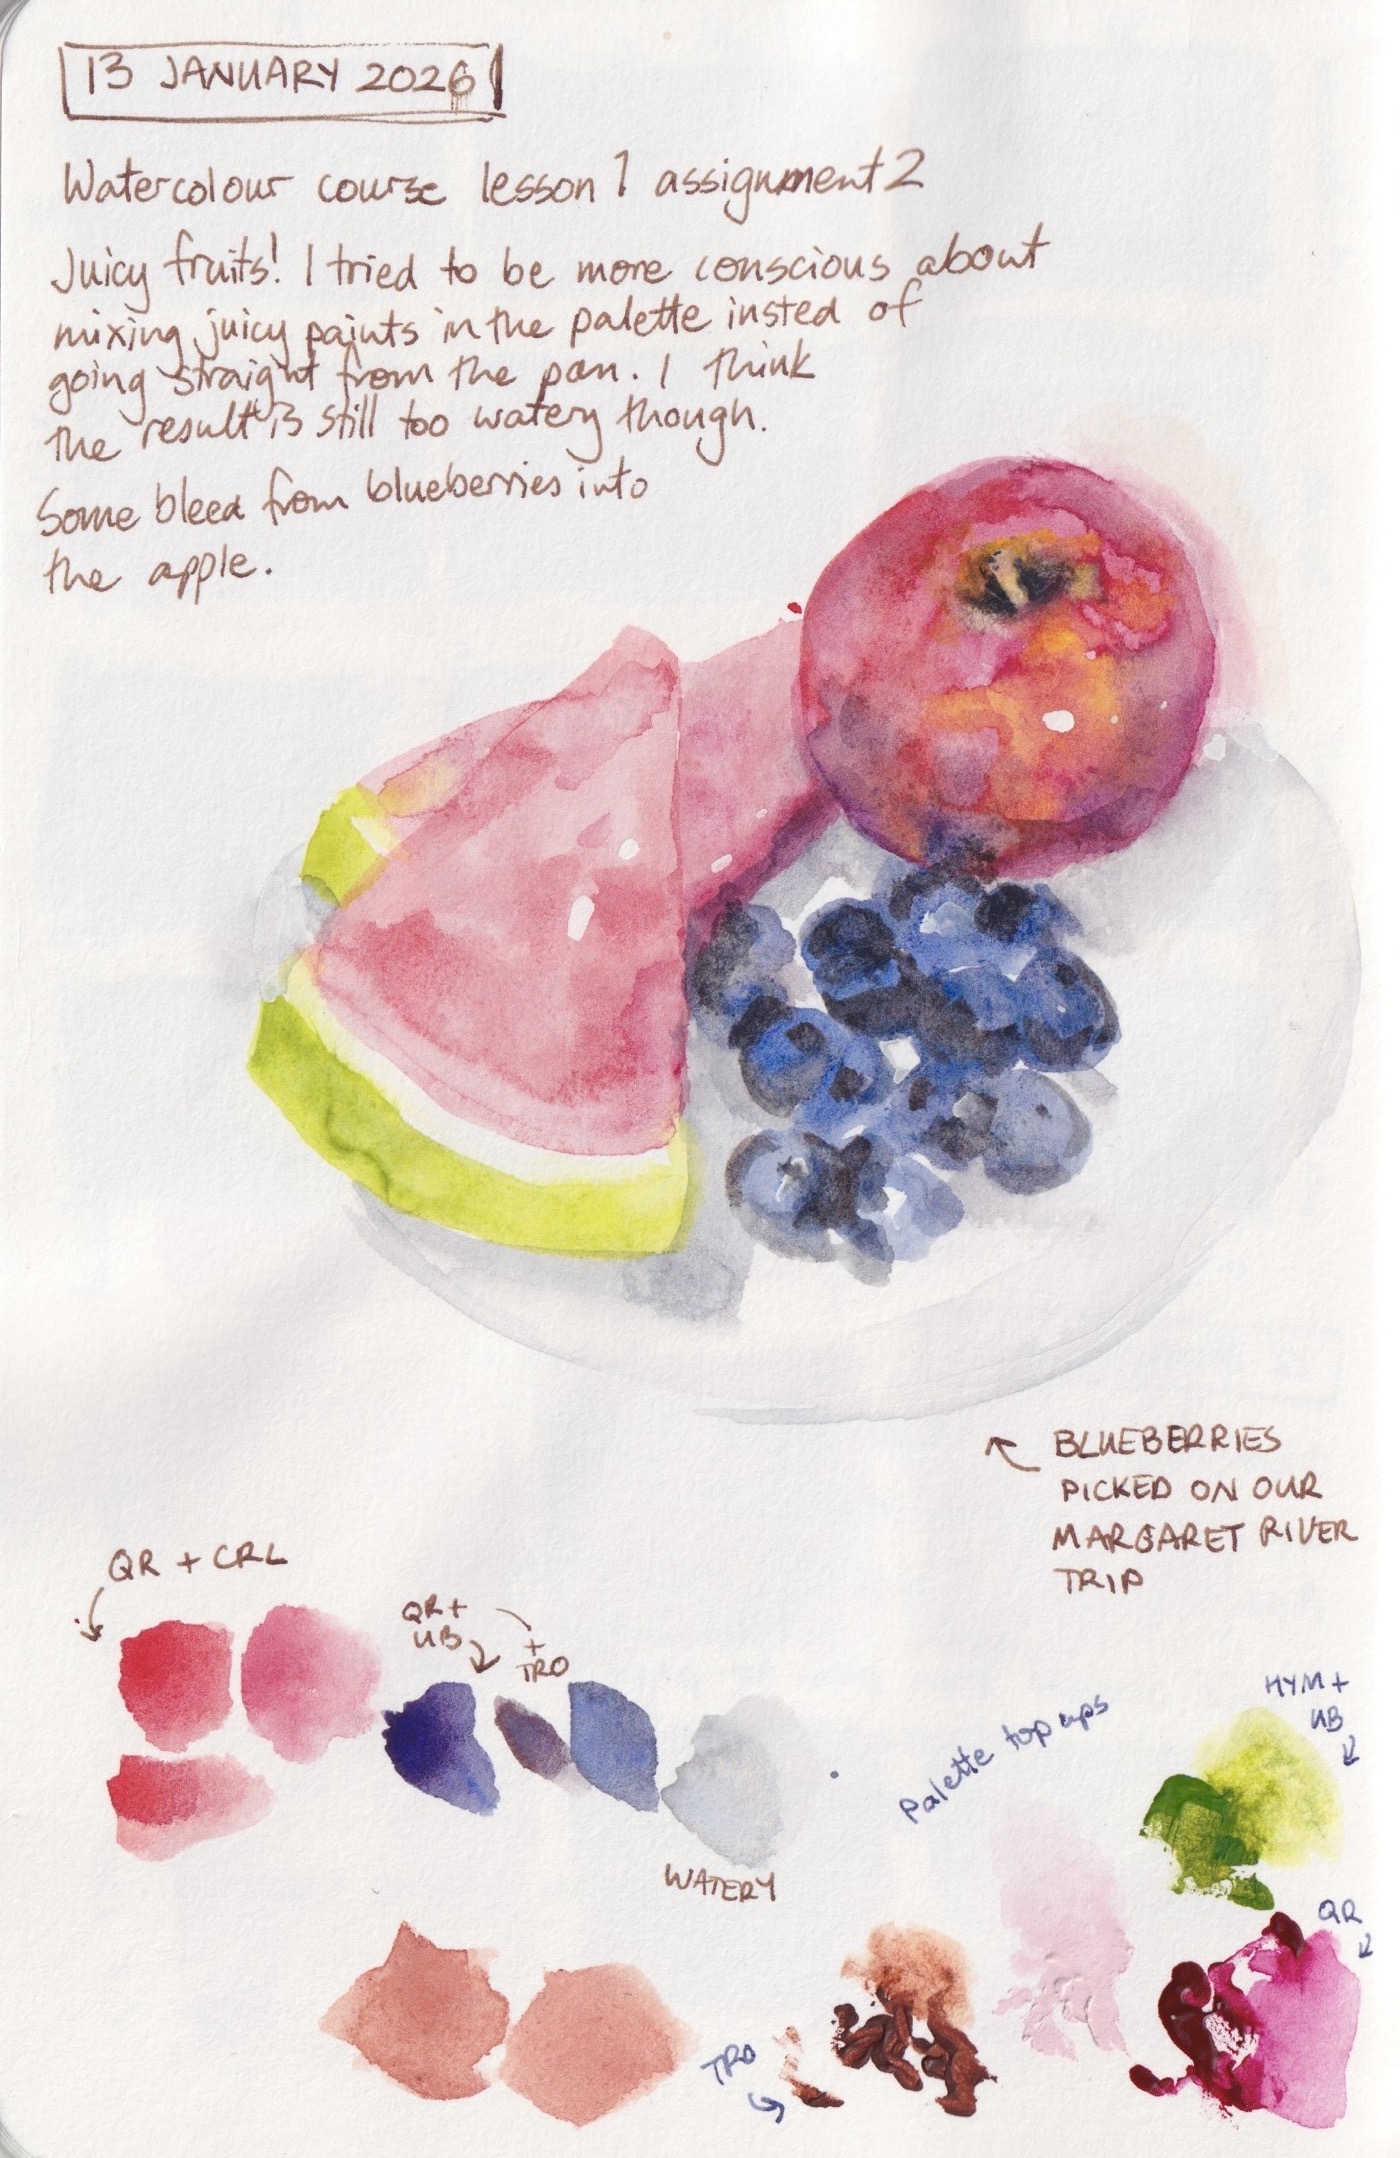 13 JANUARY 2026
Watercolour course lesson 1 assignment 2
Juicy fruits! I tried to be more conscious about
mixing juicy paints in the palette insted of
going straight from the pan. I think
the result is still too watery though.
Some bleed from blueberries into
the apple.
BLUEBERRIES
PICKED ON OUR
MARGARET RIVER
TRIP
QR + CRL
QR +
UB
+
TRO
WATERY
Palette top ups
HYM +
UB
QR
TRO